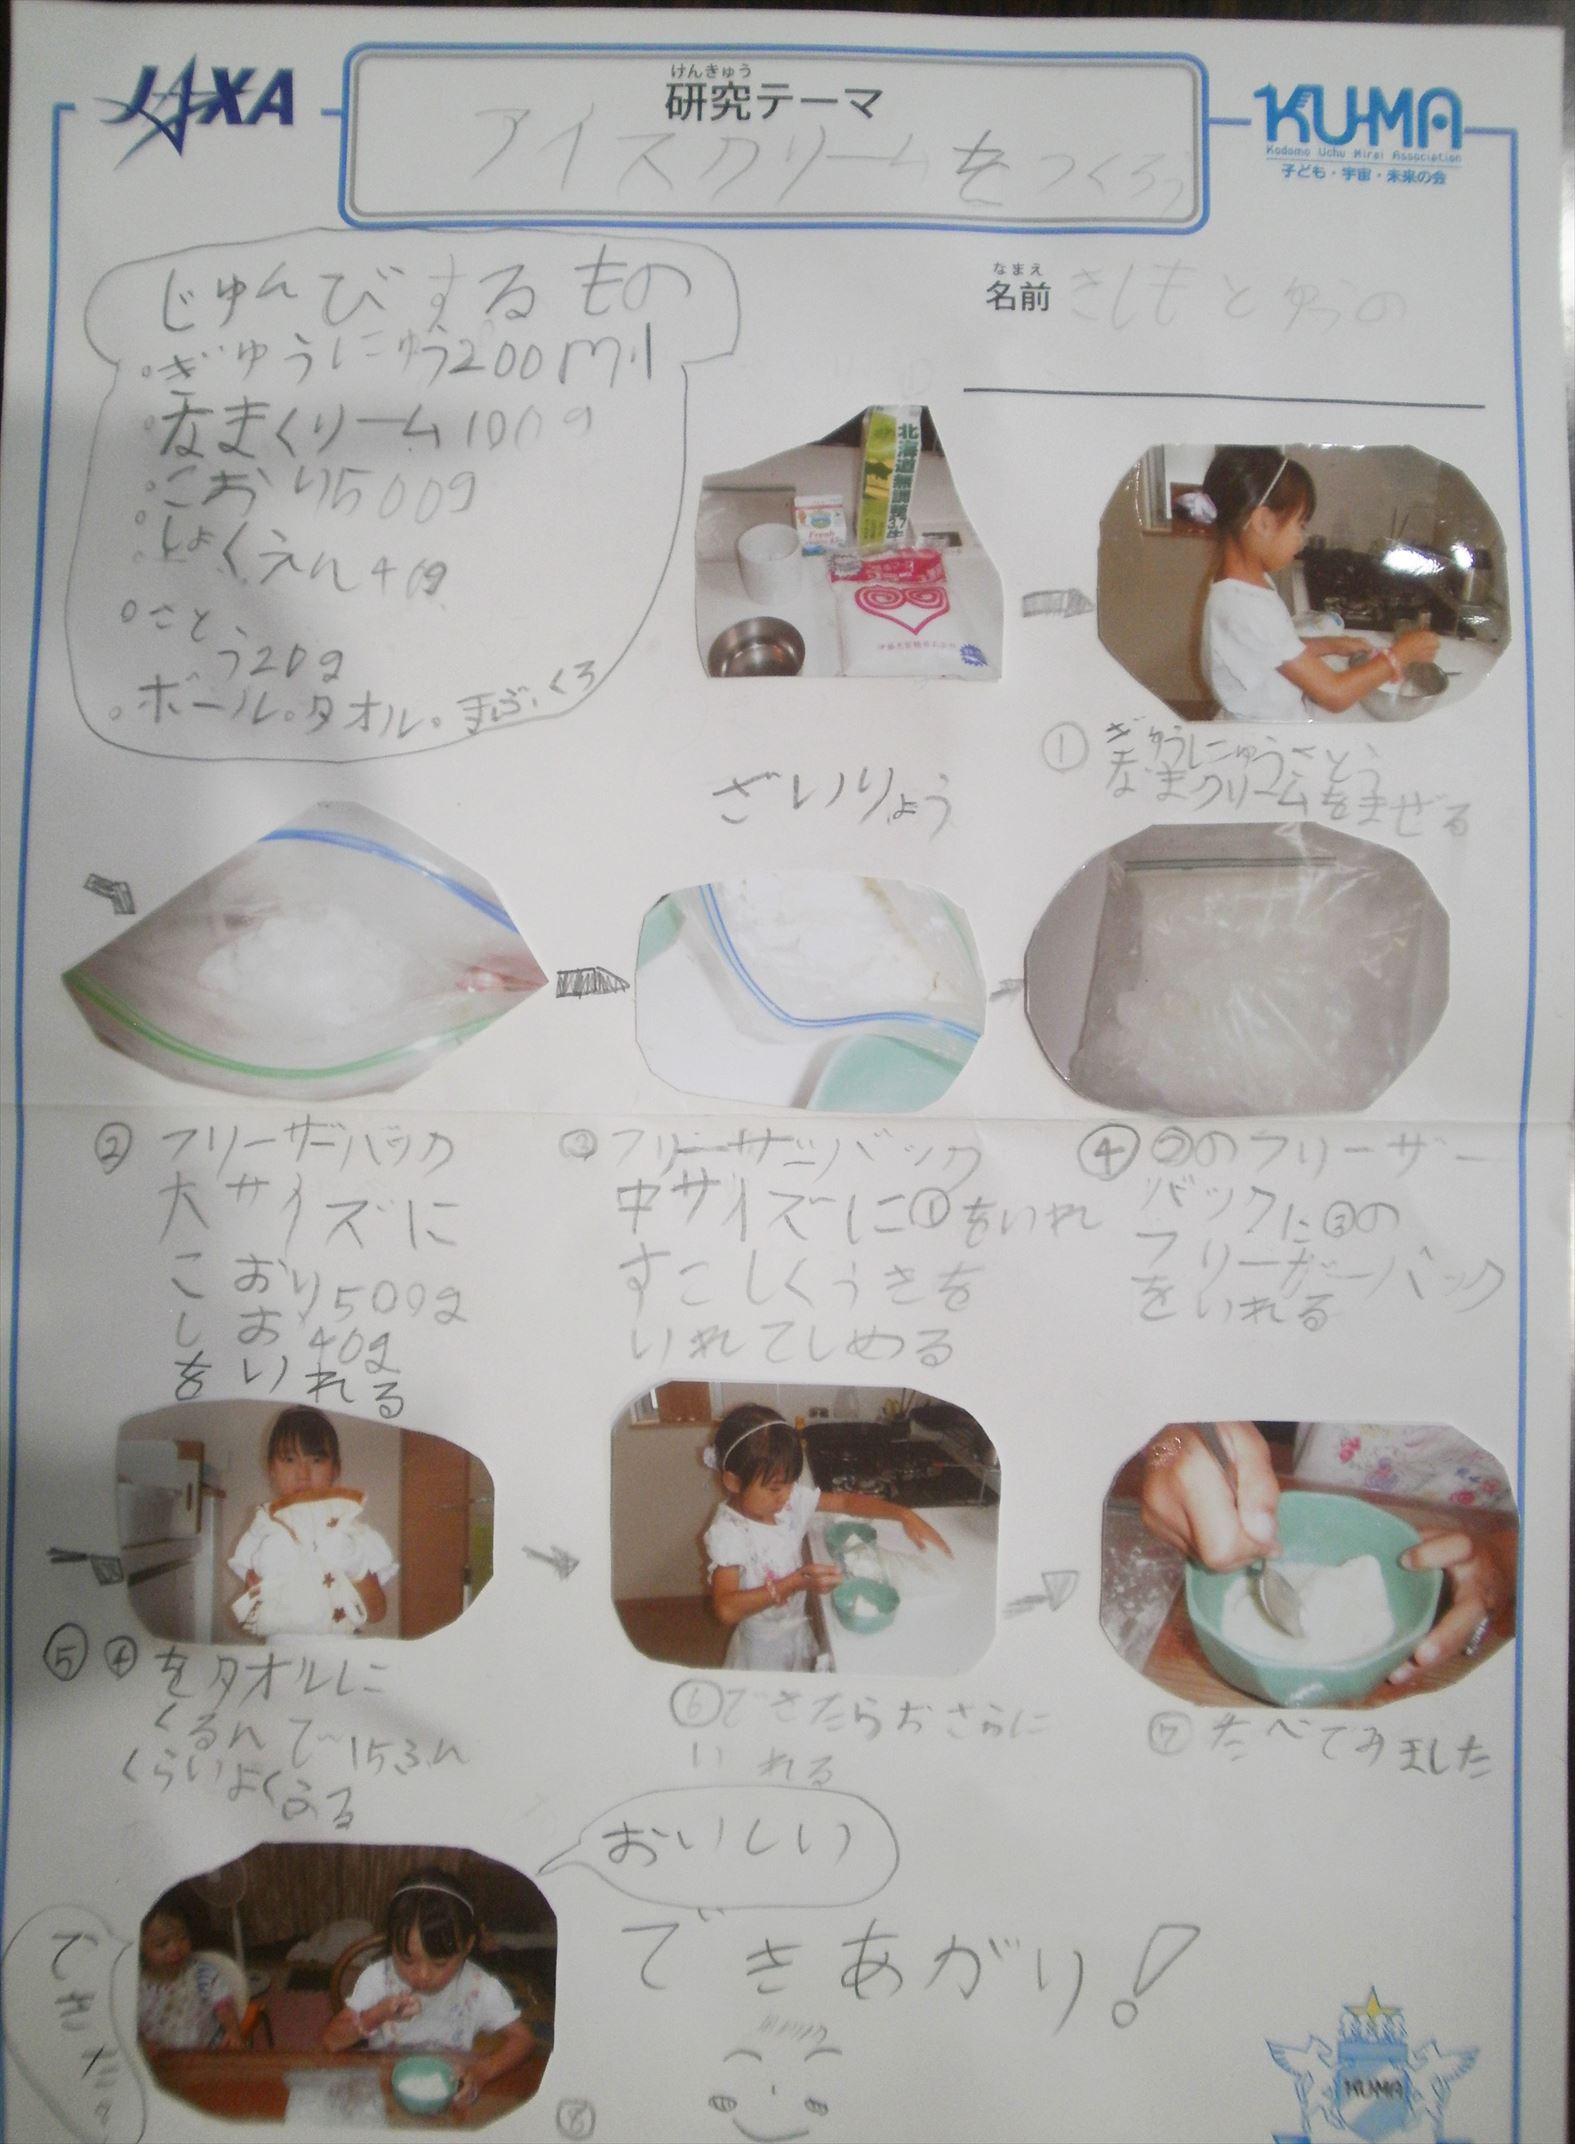 JAXA
けんきゅう
研究テーマ
アイスクリームをつくろう
KU-MA
Kodomo Uchu Mirai Association
子ども・宇宙・未来の会
なまえ
名前 きしもと ゆうの
じゅんびするもの
・ぎゅうにゅう200ml
・なまくりーム100g
・こおり500g
・しょくえん40g
・さとう20g
・ボール・タオル・手ぶくろ
北海道
Fresh
ざいりょう
① ぎゅうにゅうさとう
なまクリームをまぜる
② フリーザーバック
大サイズに
こおり500g
しお40g
をいれる
③ フリーザーバック
中サイズに①をいれ
すこしくうきを
いれてしめる
④ ②のフリーザー
バックに③の
フリーザーバック
をいれる
⑤ ④をタオルに
くるんで15ふん
くらいよくふる
⑥できたらおさらに
いれる
⑦ たべてみました
おいしい
できあがり!
⑧
KU-MA